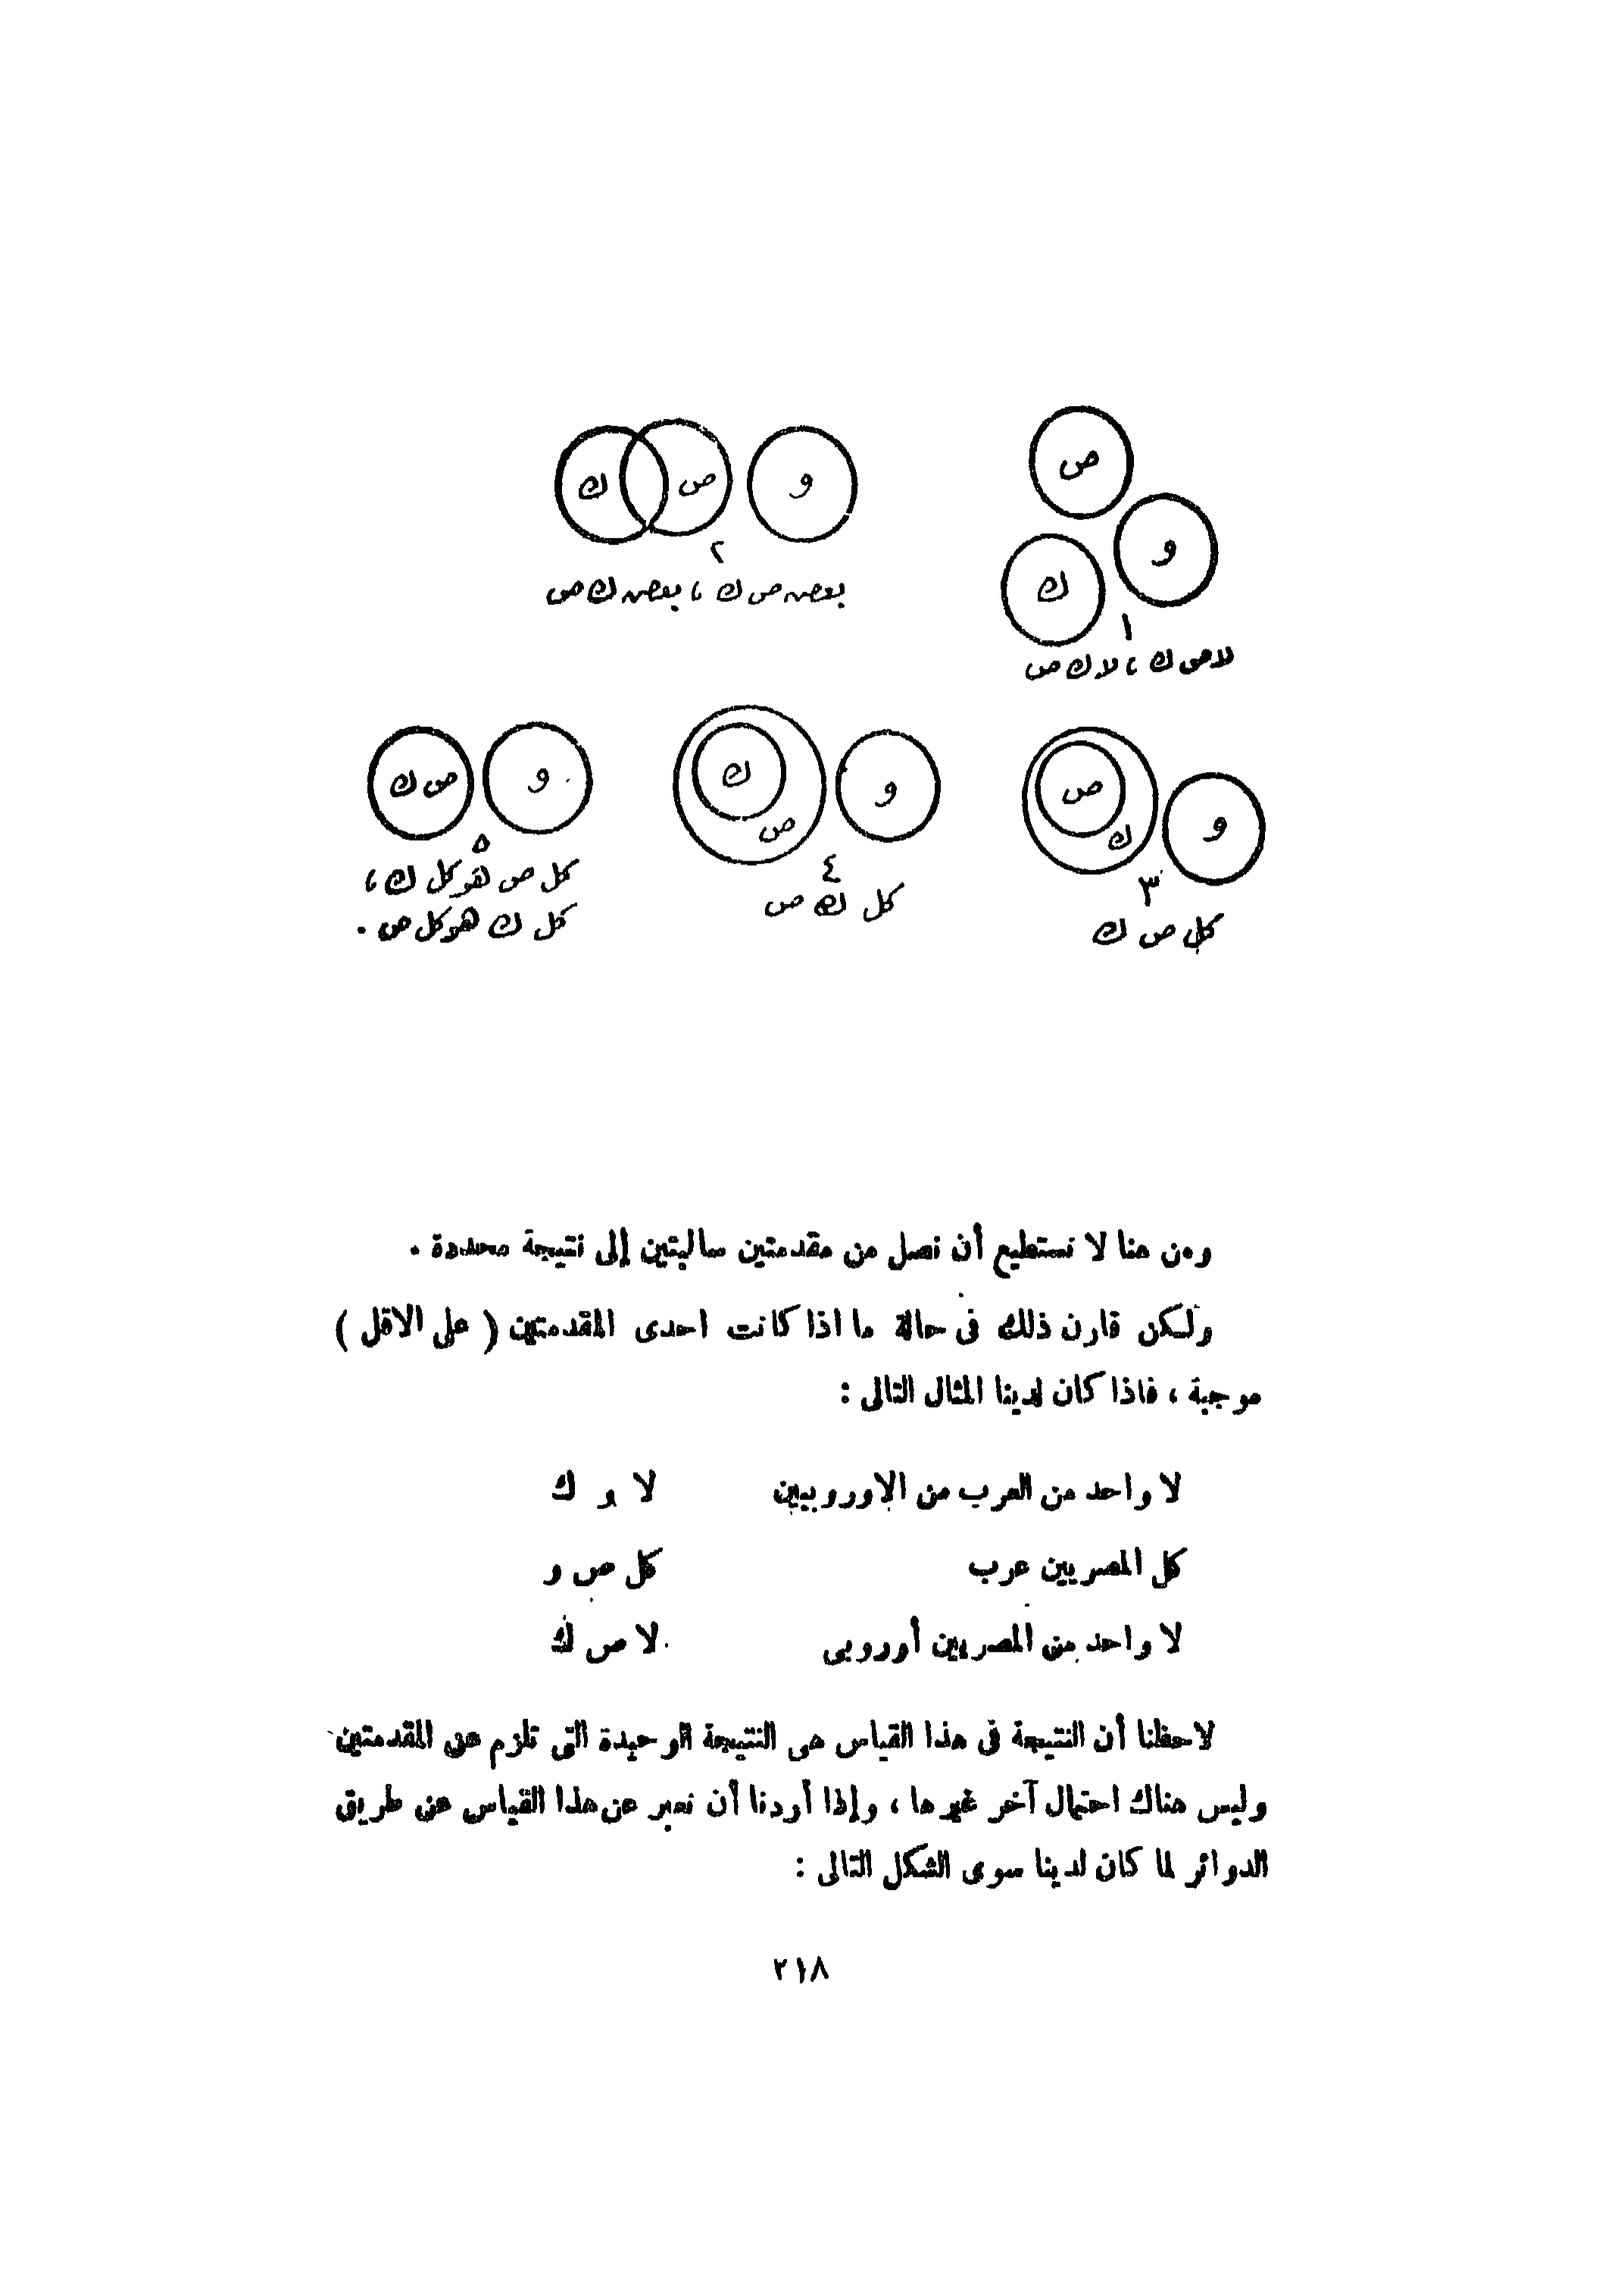 ص
و
ك
١
لا ص ك ، لا ك ص
و
ص
ك
٢
بعض ص ك ، بعض ك ص
و
ص
ك
٣
كل ص ك
و
ك
ص
٤
كل ك ص
و
ص ك
٥
كل ص هو كل ك ،
كل ك هو كل ص .
ومن هنا لا نستطيع أن نصل من مقدمتين سالبتين إلى نتيجة محددة .
ولكن قارن ذلك فى حالة ما اذا كانت احدى المقدمتين ( على الاقل )
موجبة ، فاذا كان لدينا المثال التالى :
لا واحد من العرب من الاوروبيين لا و ك
كل المصريين عرب كل ص و
لا واحد من المصريين أوروبى لا ص ك
لاحظنا أن النتيجة فى هذا القياس هى النتيجة الوحيدة التى تلزم عن المقدمتين
وليس هناك احتمال آخر غيرها ، وإذا أردنا أن نعبر عن هذا القياس عن طريق
الدوائر لما كان لدينا سوى الشكل التالى :
٢١٨